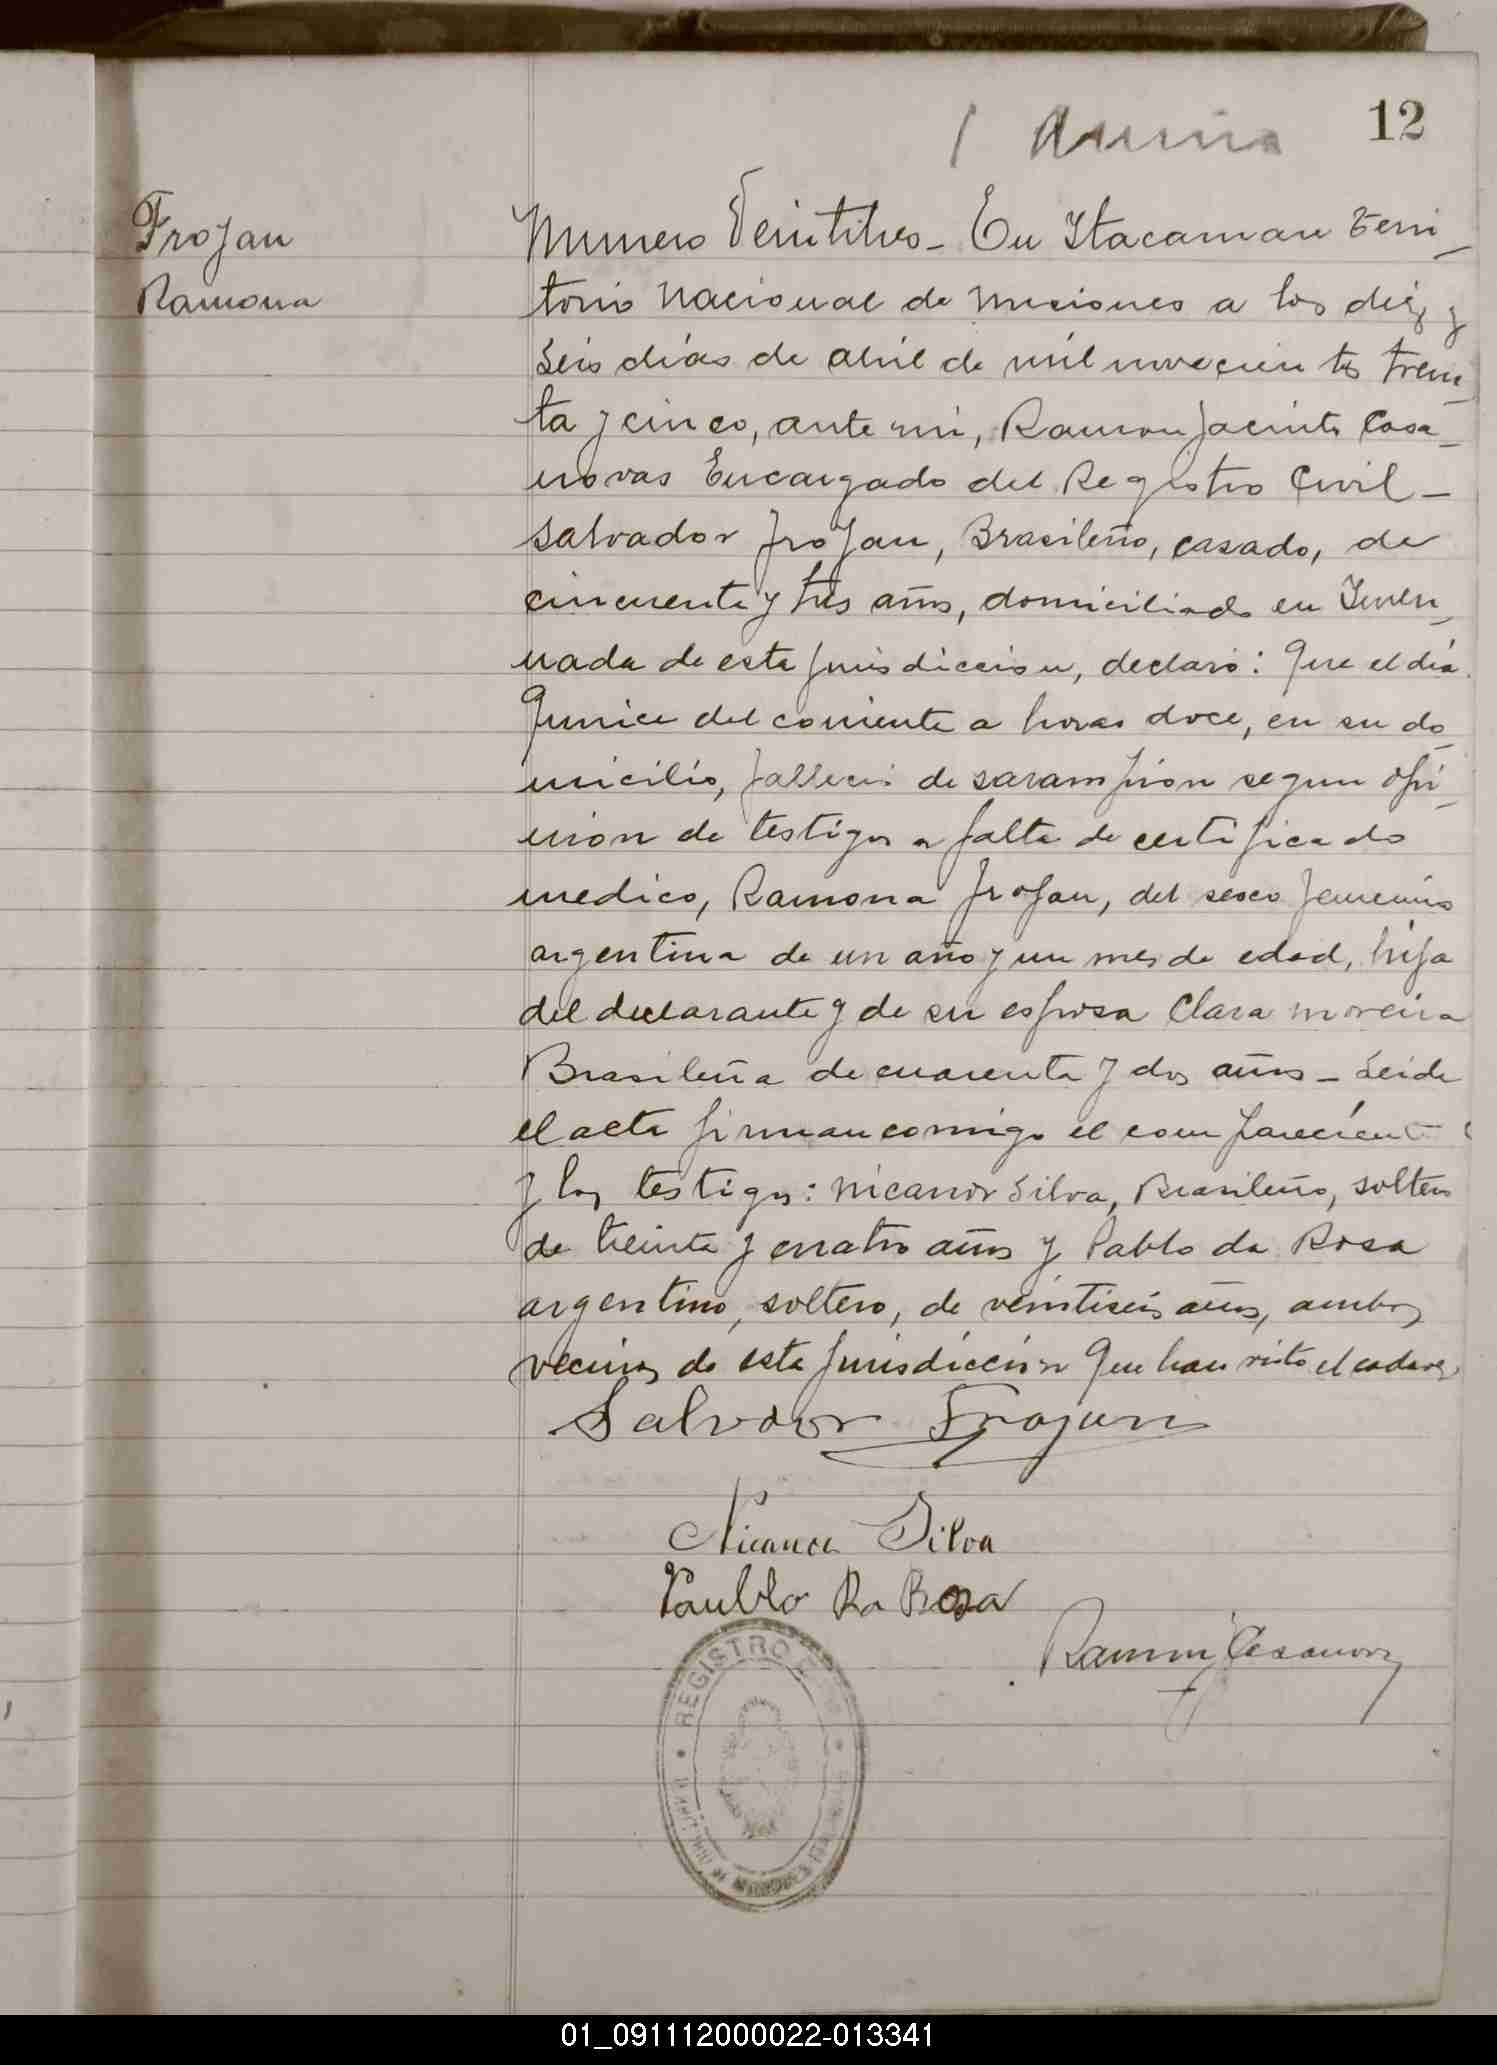 12
Frojan
Ramona
Numero Veintitres - En Itacaruare Terri-
torio Nacional de Misiones a los diez y
seis dias de abril de mil novecientos trein-
ta y cinco, ante mi, Ramon Jacinto Casa-
novas Encargado del Registro Civil -
Salvador Frojan, Brasileño, casado, de
cincuenta y tres años, domiciliado en
de esta jurisdiccion, declaró: Que el dia
quince del corriente a horas doce, en su do-
micilio, falleció de sarampion segun opi-
nion de testigos a falta de certificado
medico, Ramona Frojan, del sexo femenino
argentina de un año y un mes de edad, hija
del declarante y de su esposa Clara Moreira
Brasileña de cuarenta y dos años - Leida
el acta firman comigo el compareciente
y los testigos: Nicanor Silva, Brasileño, soltero
de treinta y cuatro años y Pablo da Rosa
argentino, soltero, de veintiseis años, ambos
vecinos de esta jurisdiccion que han visto el cadaver
Salvador Frojan
Nicanor Silva
Paublo Da Rosa
Ramon J Casanovas
REGISTRO
01_091112000022-013341